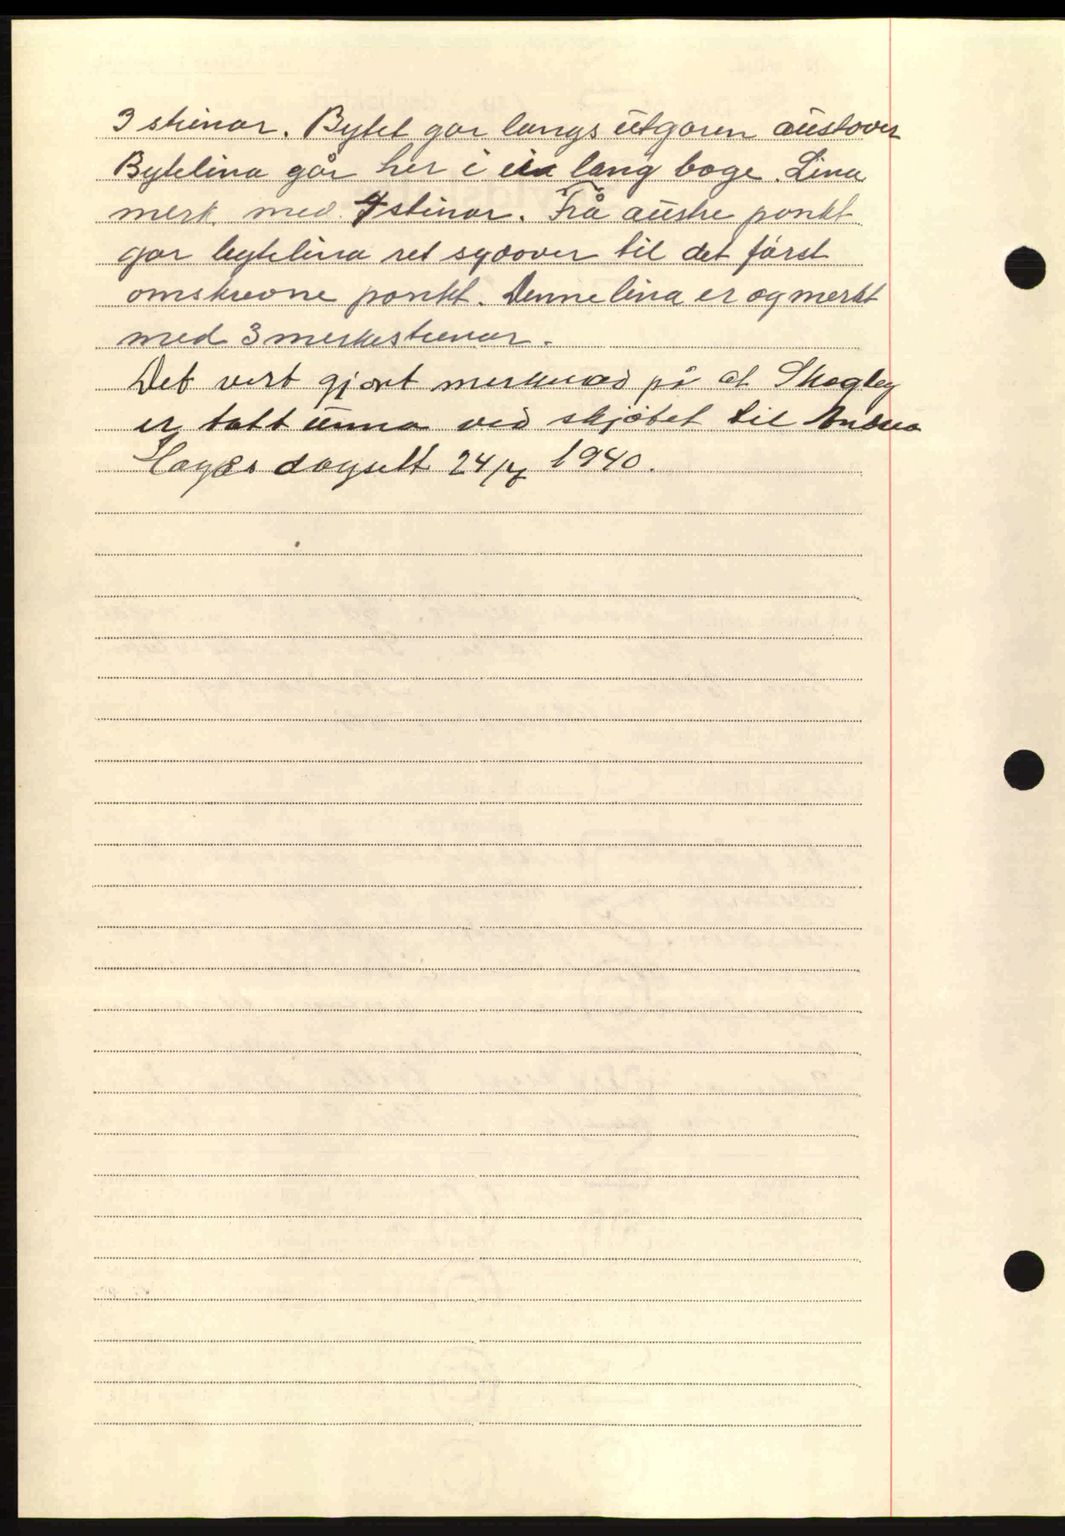 3 steinar. Bytet gar langs ütgaren aüstover
Bytelina går her i ein lang boge. Lina
merk. med 4 steinar. Frå aüstre ponkt
gar bytelina ret sydover til det först
omskrevne ponkt. Denne lina er og merkt
med 3 merkesteinar.
Det vert gjort merknad på at Skogley
er tatt ünna ved skjötet til
dagsett 24/7 1940.